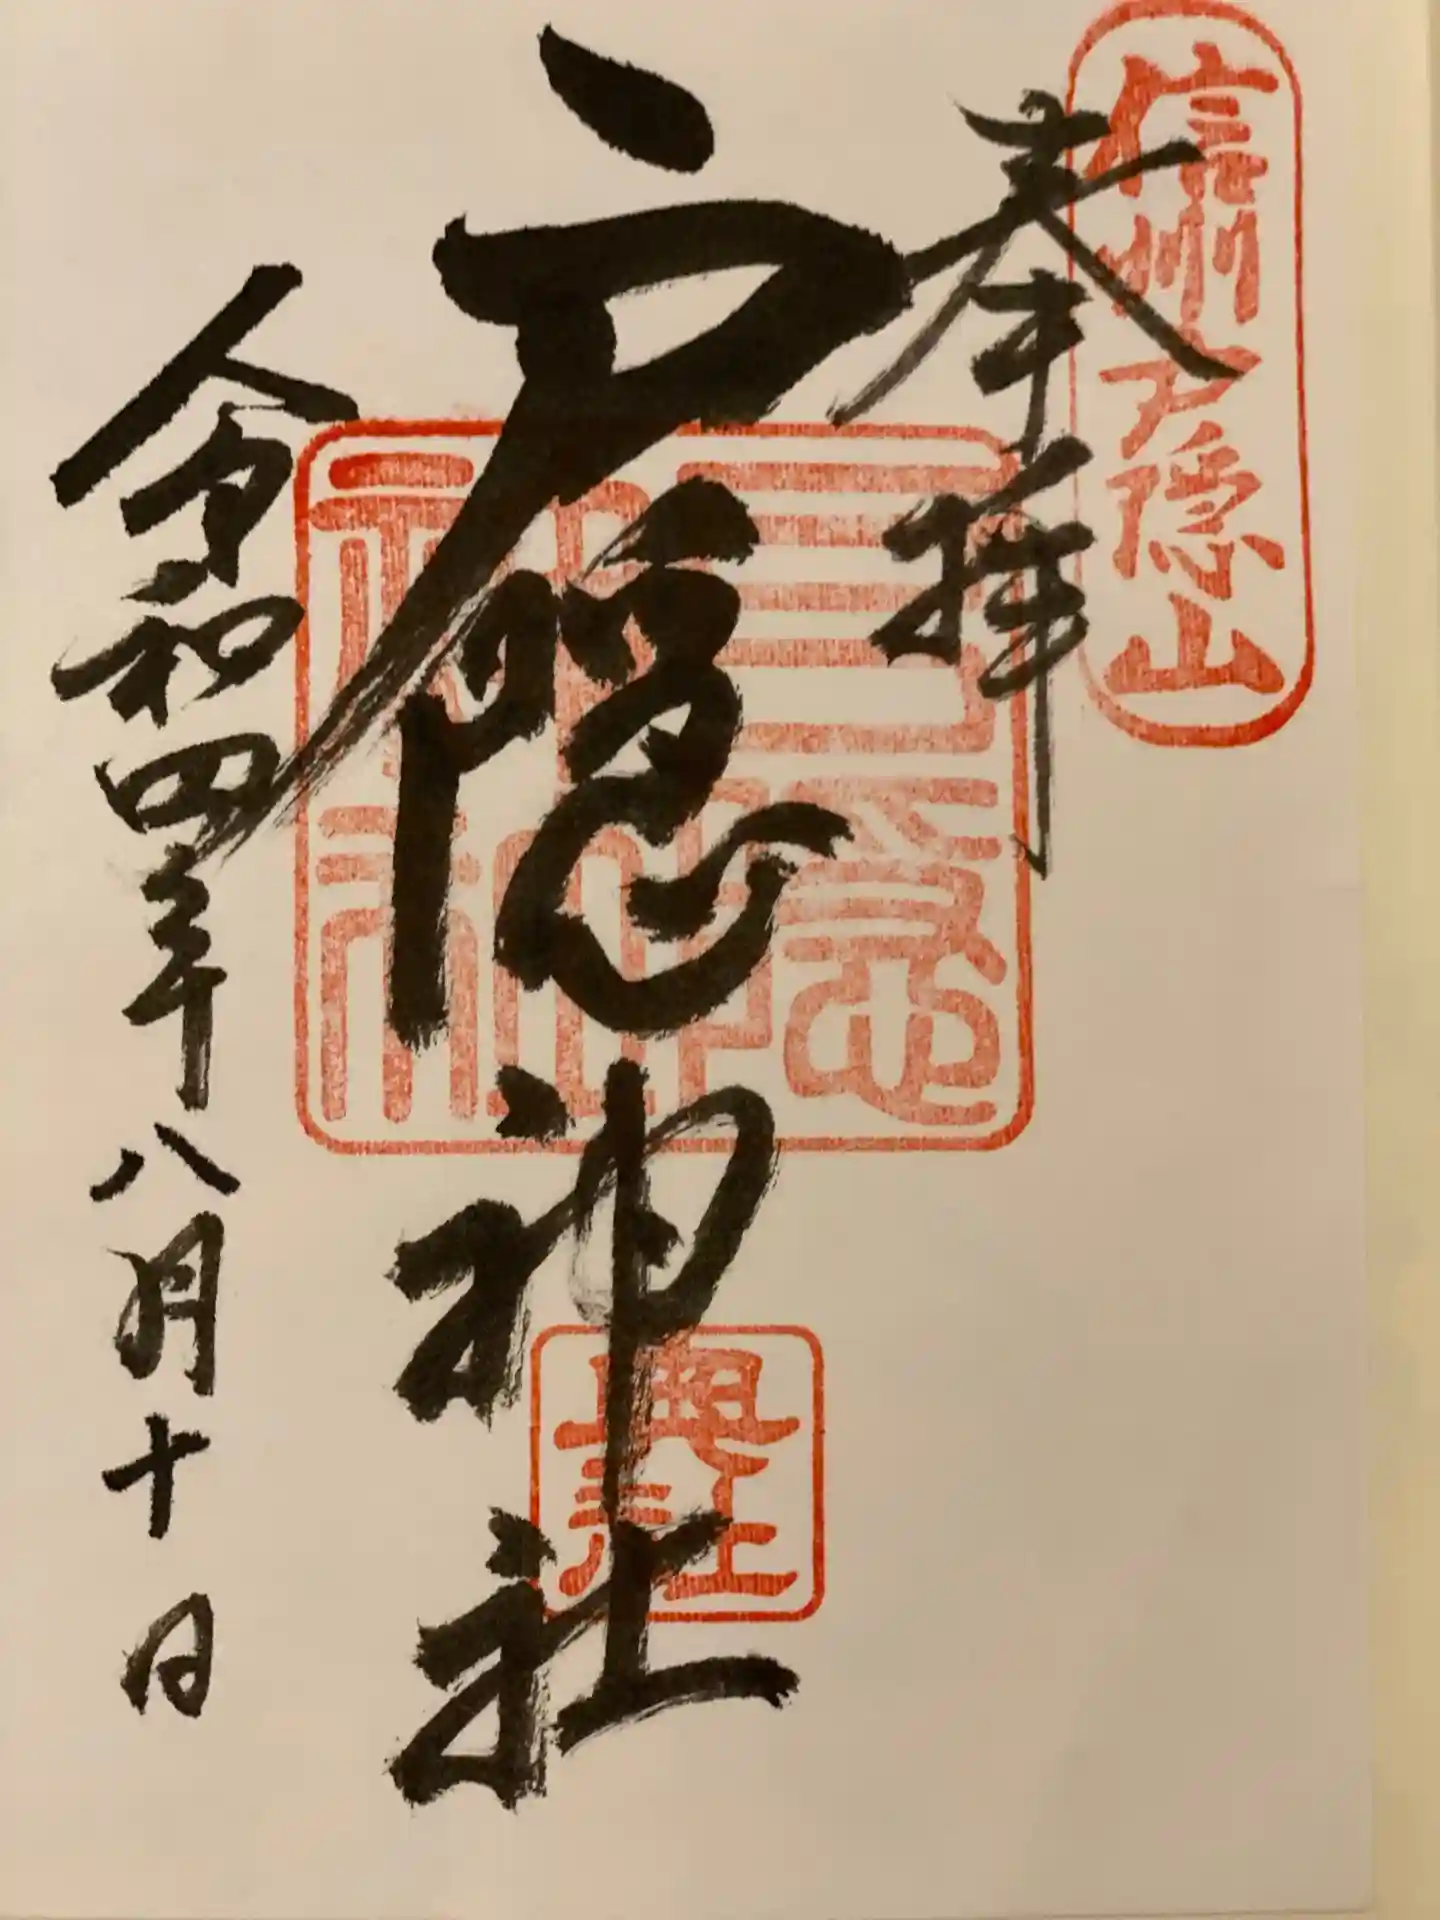 信州戸隠山
奉拝
戸隠神社
奥社
令和四年八月十日